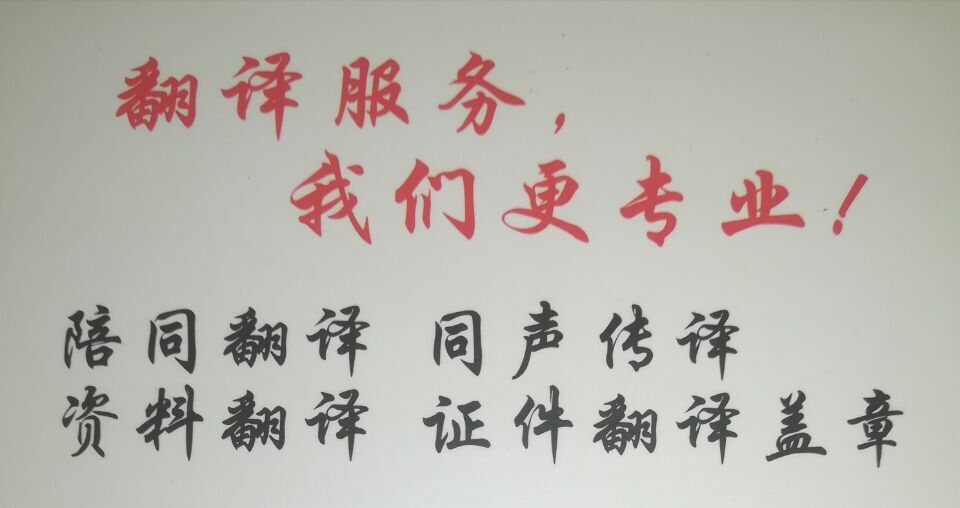 翻译服务,
我们更专业!
陪同翻译 同声传译
资料翻译 证件翻译盖章